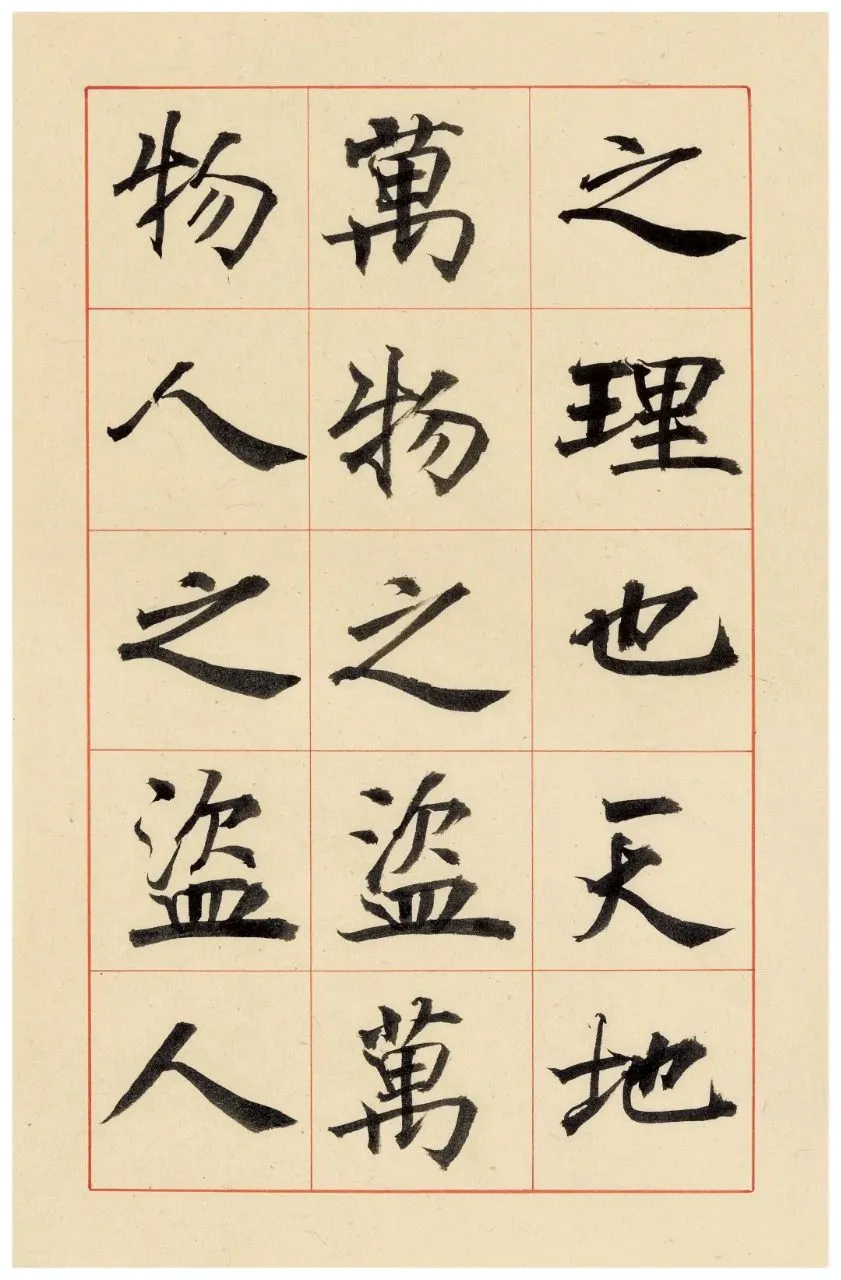 之理也天地
萬物之盜萬
物人之盜人